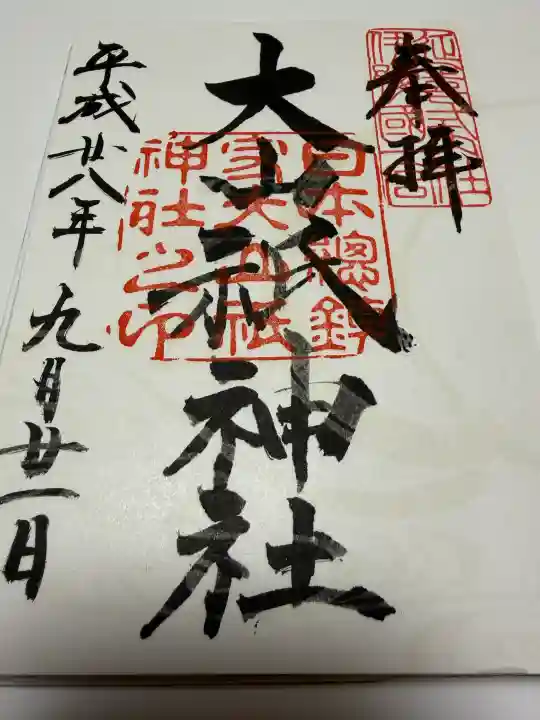 奉拝
大山祇神社
日本總鎮
守大山祇
神社之印
平成廿八年九月廿一日